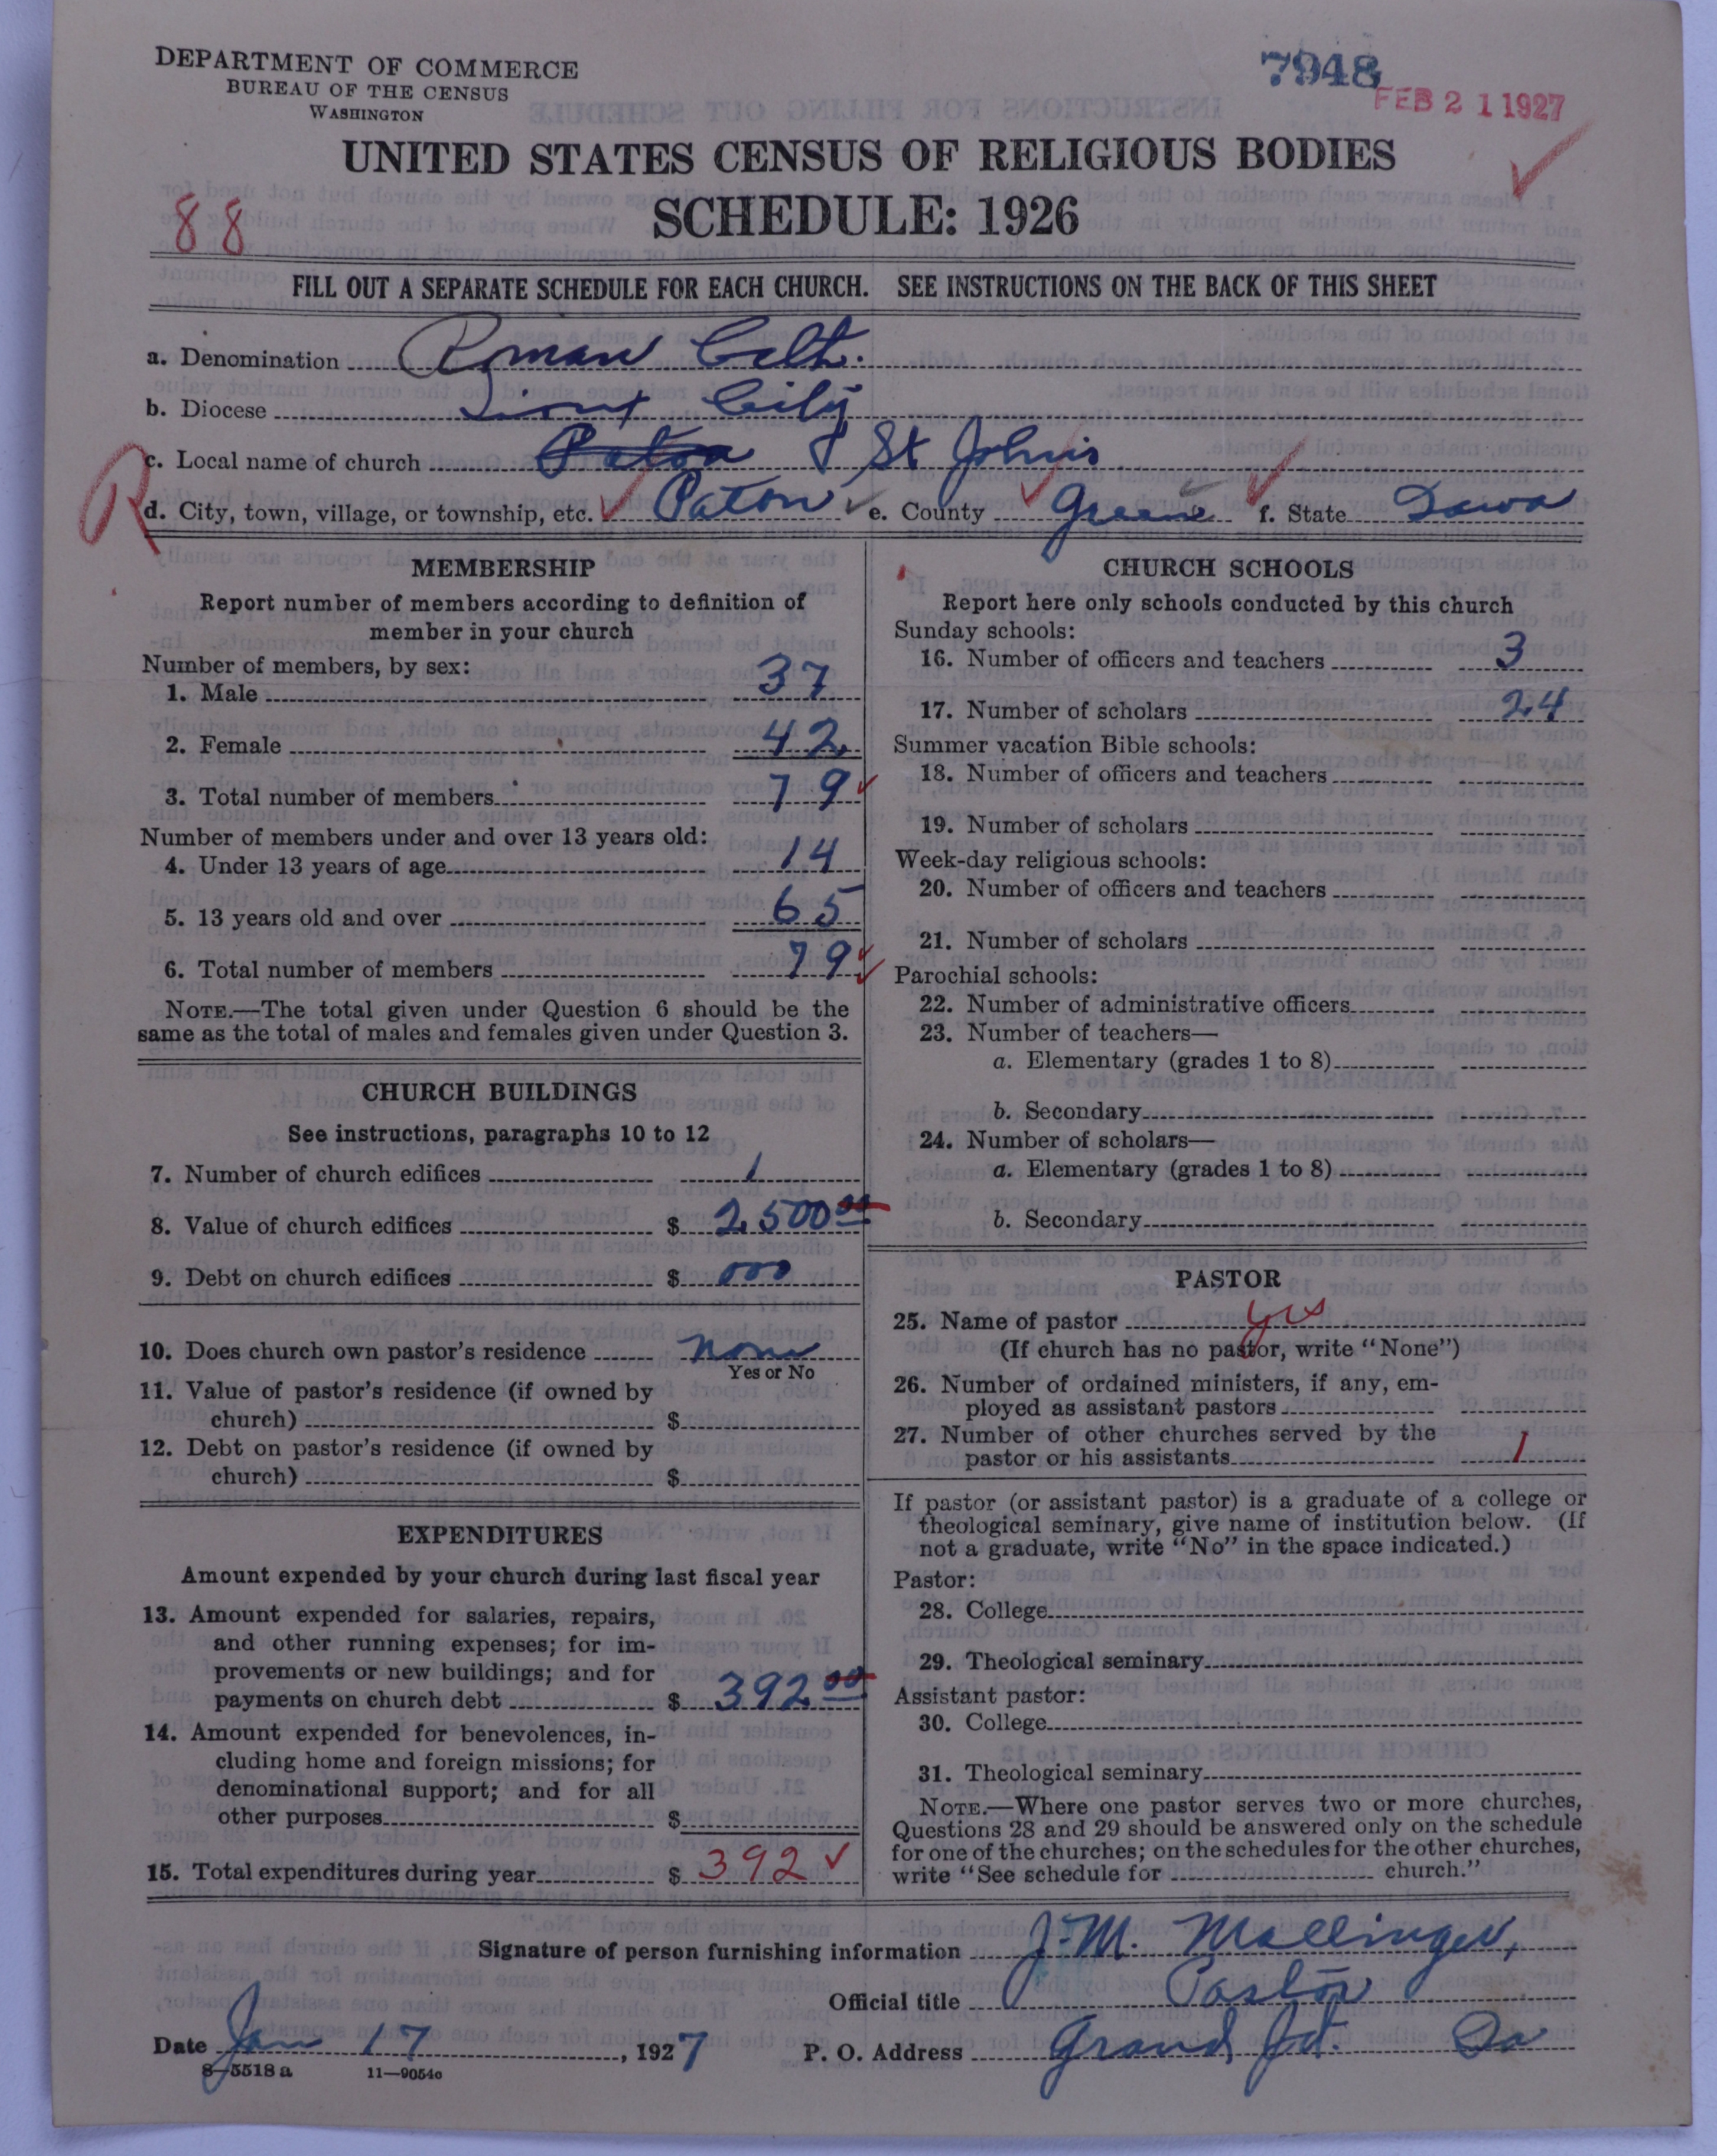 DEPARTMENT OF COMMERCE
BUREAU OF THE CENSUS
WASHINGTON
7948
FEB 21 1927
UNITED STATES CENSUS OF RELIGIOUS BODIES
88
SCHEDULE: 1926
FILL OUT A SEPARATE SCHEDULE FOR EACH CHURCH. SEE INSTRUCTIONS ON THE BACK OF THIS SHEET
a. Denomination Roman Cath.
b. Diocese Sioux City
c. Local name of church Paton St Johns
R
d. City, town, village, or township, etc. Paton e. County Greene f. State Iowa
MEMBERSHIP
Report number of members according to definition of
member in your church
Number of members, by sex:
1. Male 37
2. Female 42
3. Total number of members 79
Number of members under and over 13 years old:
4. Under 13 years of age 14
5. 13 years old and over 65
6. Total number of members 79
NOTE.—The total given under Question 6 should be the
same as the total of males and females given under Question 3.
CHURCH BUILDINGS
See instructions, paragraphs 10 to 12
7. Number of church edifices 1
8. Value of church edifices $ 2,500 00
9. Debt on church edifices $ 000
10. Does church own pastor's residence none
Yes or No
11. Value of pastor's residence (if owned by
church) $
12. Debt on pastor's residence (if owned by
church) $
EXPENDITURES
Amount expended by your church during last fiscal year
13. Amount expended for salaries, repairs,
and other running expenses; for im-
provements or new buildings; and for
payments on church debt $ 392 00
14. Amount expended for benevolences, in-
cluding home and foreign missions; for
denominational support; and for all
other purposes $
15. Total expenditures during year $ 392
CHURCH SCHOOLS
Report here only schools conducted by this church
Sunday schools:
16. Number of officers and teachers 3
17. Number of scholars 24
Summer vacation Bible schools:
18. Number of officers and teachers
19. Number of scholars
Week-day religious schools:
20. Number of officers and teachers
21. Number of scholars
Parochial schools:
22. Number of administrative officers
23. Number of teachers—
a. Elementary (grades 1 to 8)
b. Secondary
24. Number of scholars—
a. Elementary (grades 1 to 8)
b. Secondary
PASTOR
25. Name of pastor yes
(If church has no pastor, write "None")
26. Number of ordained ministers, if any, em-
ployed as assistant pastors
27. Number of other churches served by the
pastor or his assistants 1
If pastor (or assistant pastor) is a graduate of a college or
theological seminary, give name of institution below. (If
not a graduate, write "No" in the space indicated.)
Pastor:
28. College
29. Theological seminary
Assistant pastor:
30. College
31. Theological seminary
NOTE.—Where one pastor serves two or more churches,
Questions 28 and 29 should be answered only on the schedule
for one of the churches; on the schedules for the other churches,
write "See schedule for church."
Signature of person furnishing information J. M. Mallinger,
Official title Pastor
Date Jan 17, 1927 P. O. Address Grand Jct. Ia
8—5518 a 11—9054o